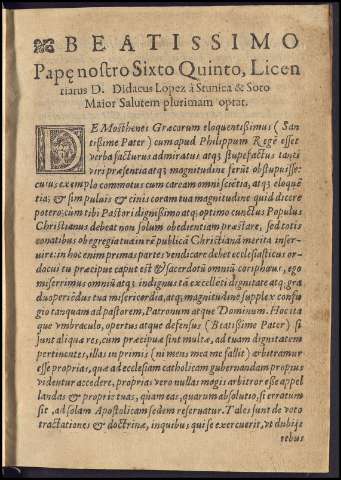 BEATISSIMO
Papę nostro Sixto Quinto, Licen
tiatus D. Didacus Lopez á Stunica & Soto
Maior Salutem plurimam optat.
DE Mosthenes Græcorum eloquentissimus (San
tissime Pater) cum apud Philippum Regē esset
verba facturus admiratus atq; stupefactus tanti
viri præsentia atq; magnitudine ferūt obstupuisse:
cuius exemplo commotus cum caream omni sciētia, atq; eloquē
tia; & sim puluis & cinis coram tua magnitudine quid dicere
potero; cum tibi Pastori dignissimo atq; optimo cunctus Populus
Christianus debeat non solum obedientiam præstare, sed totis
conatibus ob egregia tua in rē publicā Christianā merita inser-
uire: in hoc enim primas partes vendicare debet ecclesiasticus or-
do cui tu præcipue caput est & sacerdotū omniū coriphæus, ego
miserrimus omniū atq; indignus tā excellēti dignitate atq; gra
du operiēdus tua misericordia, atq; magnitudine supplex confu
gio tanquam ad pastorem, Patronum atque Dominum. Hoc ita
que vmbraculo, opertus atque defensus (Beatissime Pater) si
sunt aliquæ res, cum præcipuæ sint multæ, ad tuam dignitatem
pertinentes, illas in primis (ni mens mea me fallit) arbitramur
esse proprias, quæ ad ecclesiam catholicam gubernandam propius
videntur accedere, proprias vero nullas magis arbitror esse appel
landas & proprie tuas, quam eas, quarum absolutio, si erratum
sit, ad solam Apostolicam sedem reseruatur. Tales sunt de voto
tractationes & doctrinæ, in quibus qui se exercuerit, vt dubijs
rebus